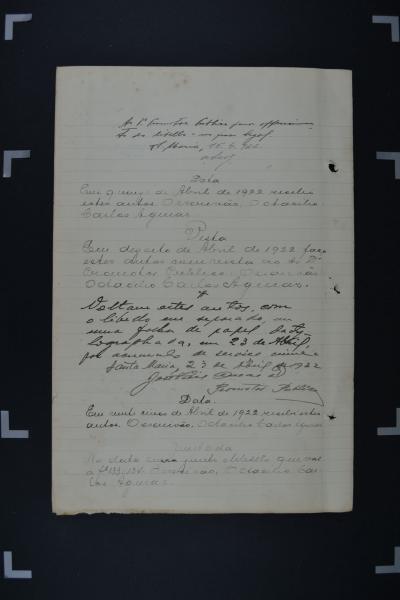 Ao Dr. Promotor Publico para offerecer
S. Maria, 15.4.922
Data
Em quinze de Abril de 1922 recebi
estes autos. O escrivão, Octacilio
Carlos Aguiar.
Vista
Em dezoito de Abril de 1922 faço
estes autos com vista ao Sr. Dr.
Promotor Publico. O escrivão
Octacilio Carlos Aguiar.
Voltam estes autos, com
o libello em separado, em
uma folha de papel dacty-
lographada, em 23 de Abril,
por accumulo de serviço
Santa Maria, 23 de Abril de 1922
Promotor Publico
Data
Em vinte e de Abril de 1922 recebi estes
autos. O escrivão, Octacilio Carlos Aguiar
Juntada
Na data junto o libello que vae
a fls 133, 134. O escrivão, Octacilio Car-
los Aguiar.